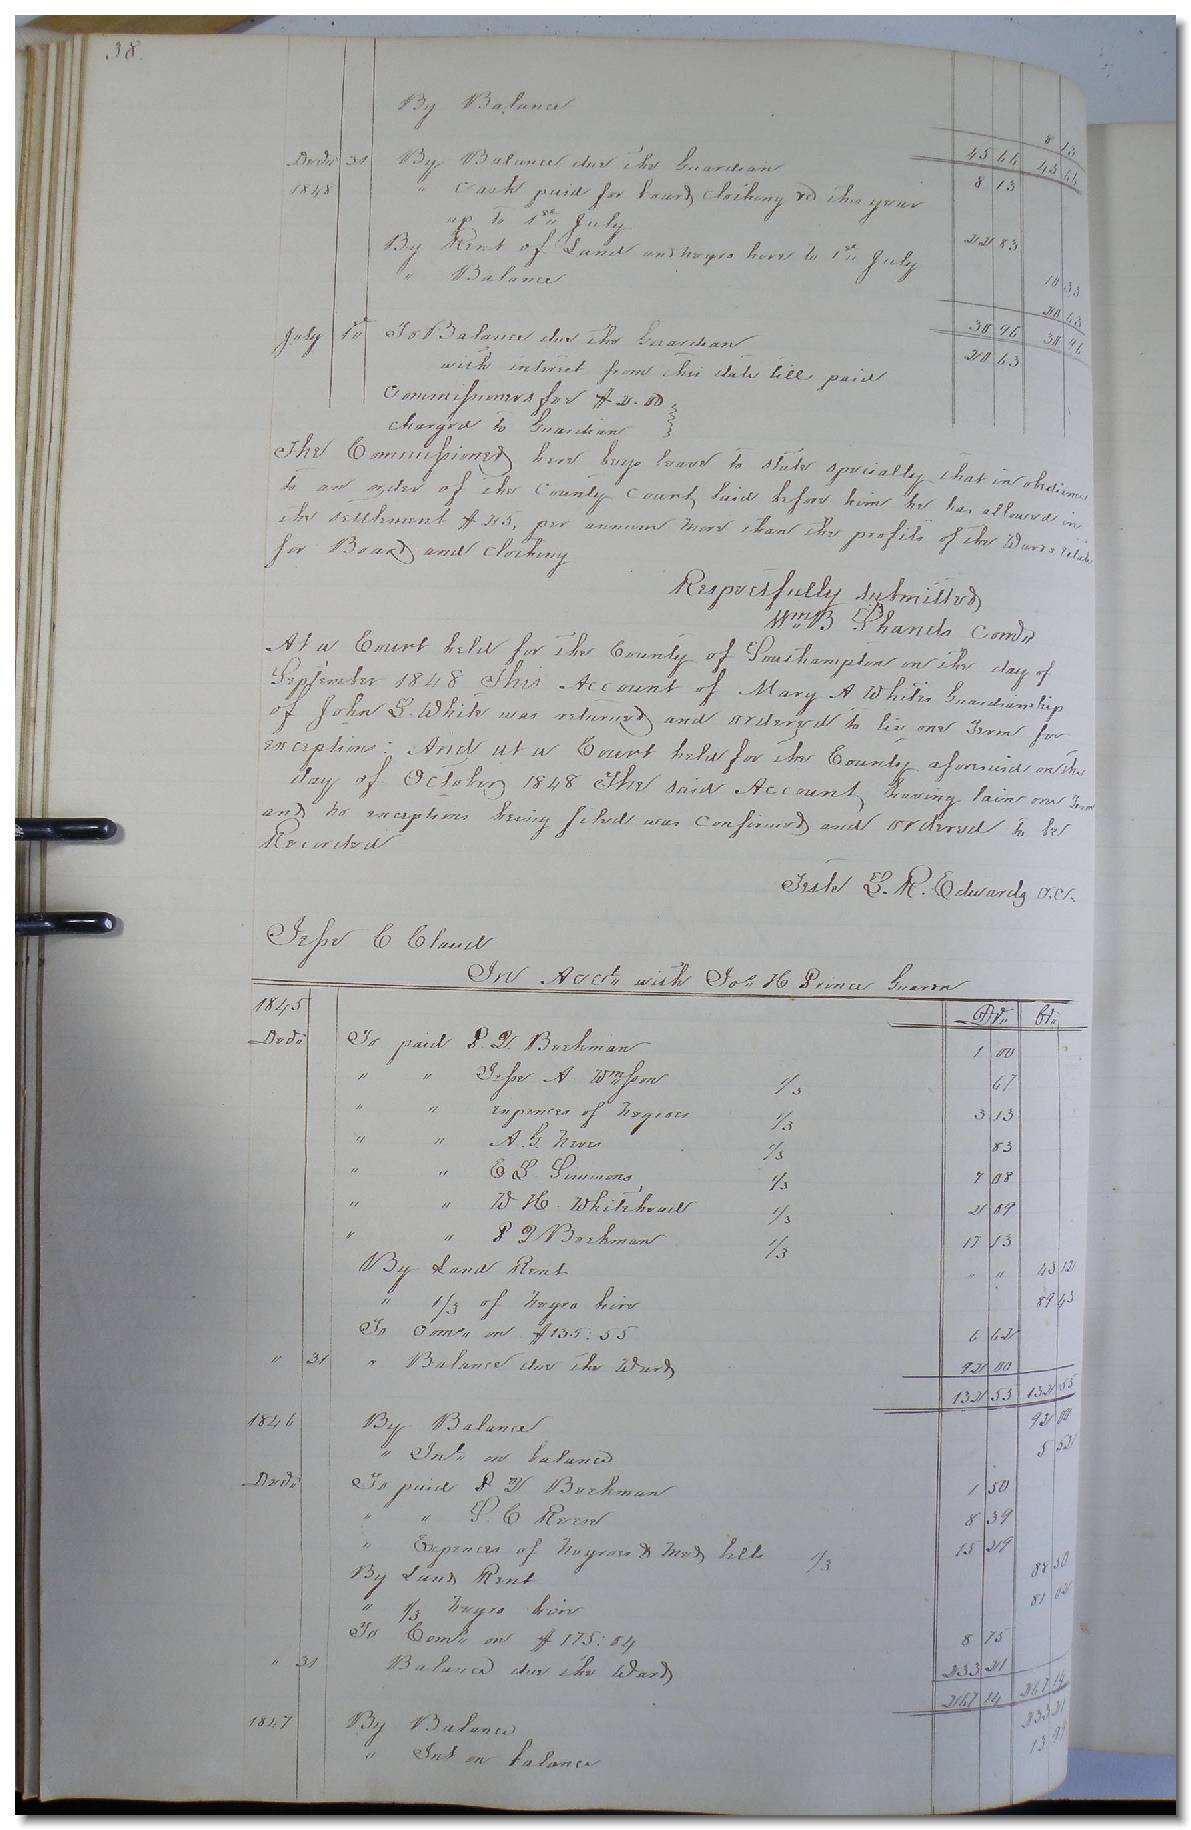 38.
By Balance 8 13
45 66 45 66
Decr 31 By Balance due the Guardian 8 13
1848 " Cash paid for board clothing &c this year
up to 1st July 22 83
By Rent of Land and negro hire to 1st July 10 33
" Balance 20 63
30 96 30 96
July 1st To Balance due the Guardian 20 63
with interest from this date till paid
Commissioners fee $2.00
charged to Guardian
The Commissioner here begs leave to state specially that in obedience
to an order of the County Court, laid before him he has allowed in
the settlement $25, per annum more than the profits of the Wards Estate
for Board and clothing
Respectfully submitted
Wm B Shands Comr
At a Court held for the County of Southampton on the day of
September 1848 This Account of Mary A Whites Guardianship
of John S. White was returned and ordered to lie one Term for
exceptions: And at a Court held for the County aforesaid on the
day of October 1848 The said Account, having lain one Term
and no exceptions being filed was confirmed and ordered to be
Recorded
Teste L. R. Edwards D.C.
Jesse C Claud
In Acct with Jos H Prince Guardn
1845 Dr Cr
Decr To paid P. D. Bockman 1 00
" " Jesse A. Wmson 1/3 67
" " expences of Negroes 1/3 3 13
" " A. G. 1/3 83
" " E L Simmons, 1/3 7 08
" " W H. Whitehead 1/3 2 09
" " P D Bockman 1/3 17 13
By Land Rent " " 43 12
" 1/3 of Negro hire 89 43
To Com on $135:55 6 62
" 31 " Balance due the Ward 92 00
132 55 132 55
1846 By Balance 92 00
" Int on balance 5 52
Decr To paid P D Bockman 1 50
" " S. C Reese 8 39
" Expences of Negroes & Med bills 1/3 15 29
By Land Rent 88 50
" 1/3 Negro hire 81 02
To Com on $175:04 8 75
" 31 Balance due the Ward 233 21
267 14 267 14
1847 By Balance 233 21
" Int on balance 13 99